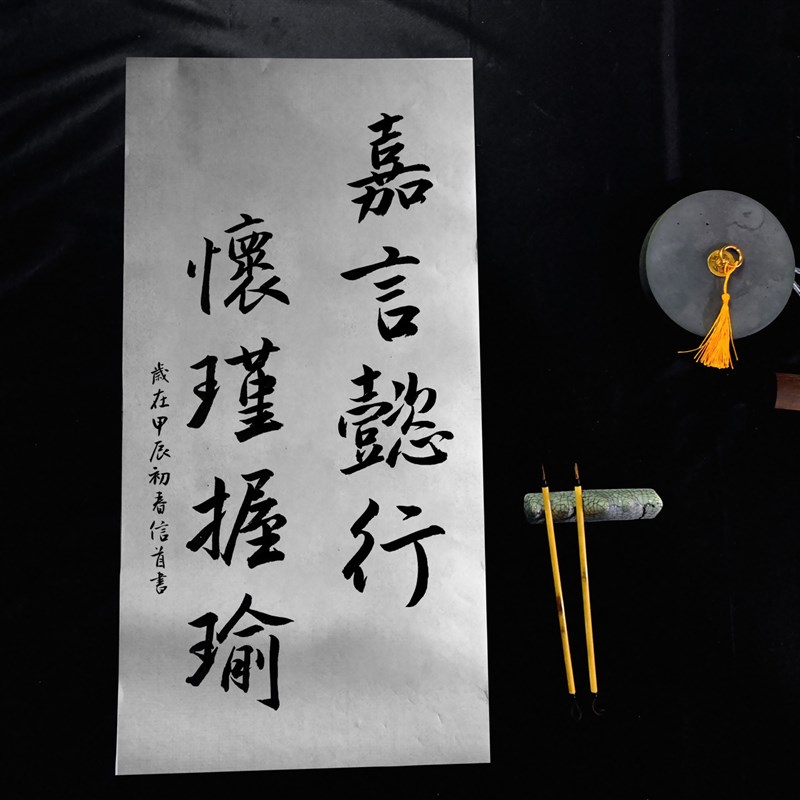 嘉言懿行
懷瑾握瑜
歲在甲辰初春信首書